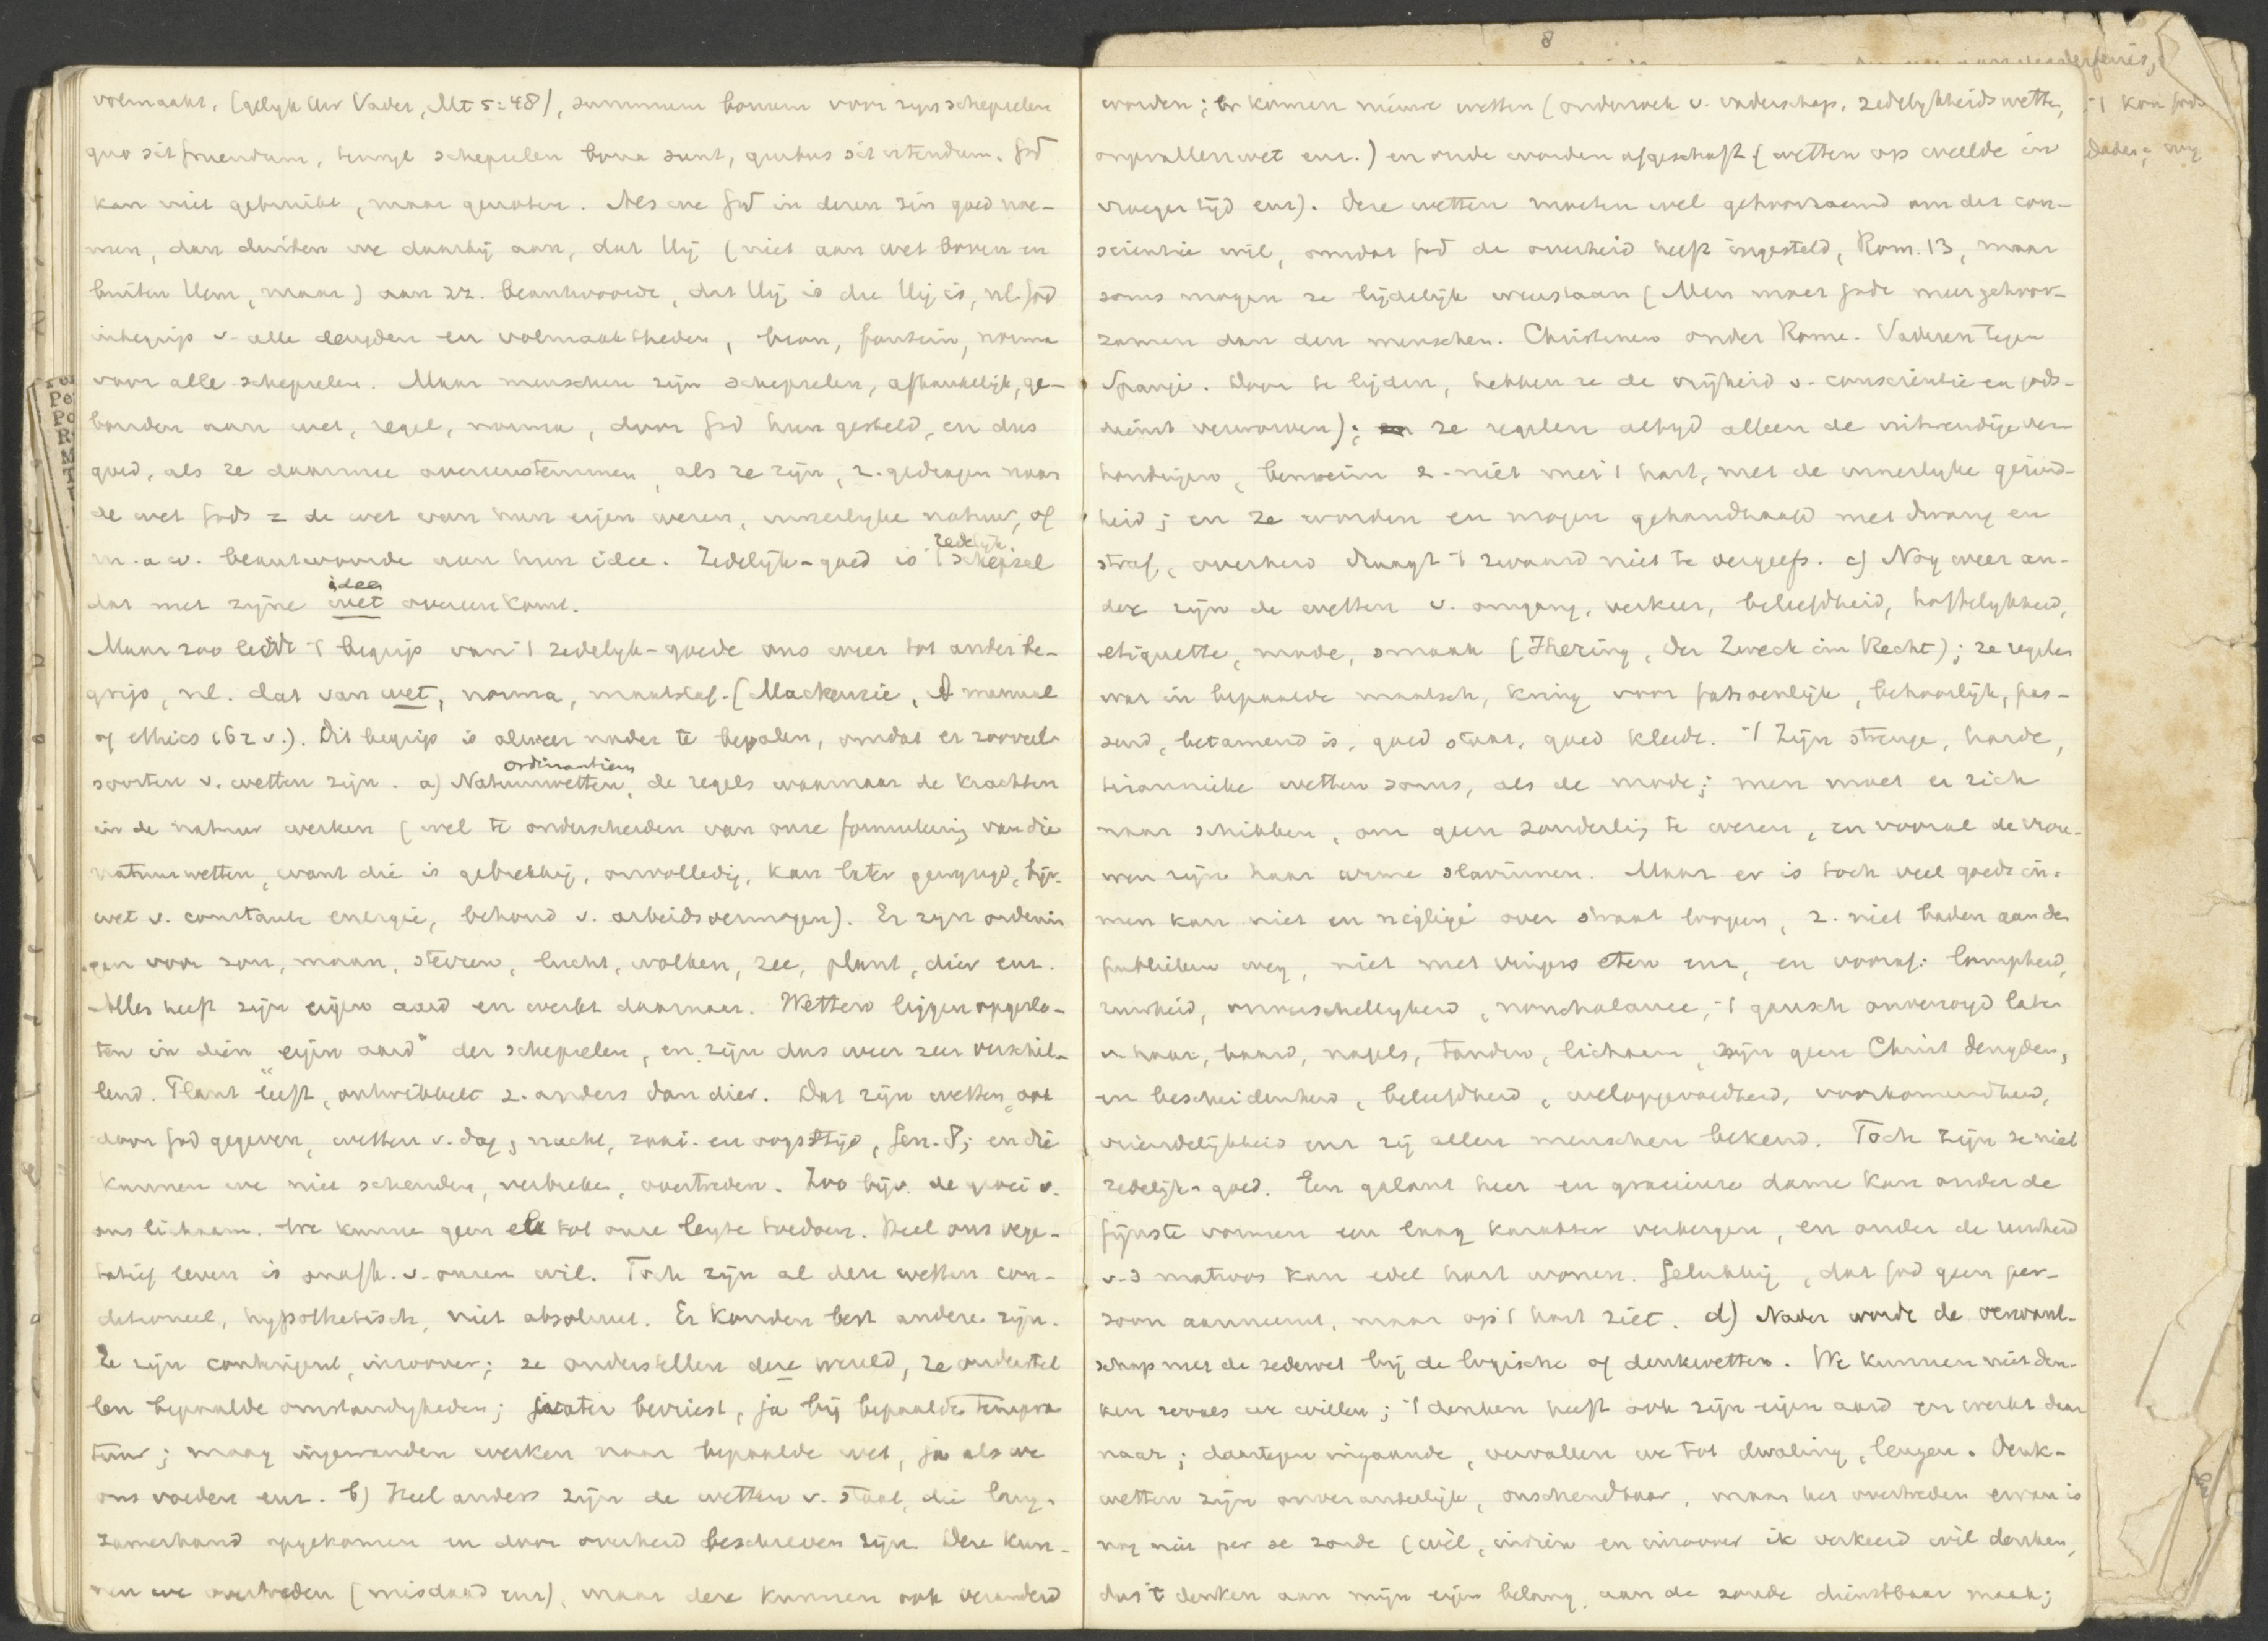 volmaakt, (gelijk Uw Vader, Mt 5:48), summum bonum voor zijn schepselen
quo sit fruendum, terwijl schepselen bona sunt, quibus sit utendum. God
kan niet gebruikt, maar genoten. Als we God in dezen zin goed noe-
men, dan duiden we daarbij aan, dat Hij (niet aan wet boven en
buiten Hem, maar) aan zz. beantwoordt, dat Hij is die Hij is, nl. God
inbegrip v. alle deugden en volmaaktheden, bron, fontein, norma
voor alle schepselen. Maar menschen zijn schepselen, afhankelijk, ge-
bonden aan wet, regel, norma, door God hun gesteld, en dus
goed, als ze daarmee overeenstemmen, als ze zijn, z. gedragen naar
de wet Gods = de wet van hun eigen wezen, innerlijke natuur, of
m.a.w. beantwoorden aan hun idee. Zedelijk-goed is 't zedelijk schepsel
dat met zijne wet idee overeenkomt.
Maar zoo leidt 't begrip van 't zedelijk-goede ons weer tot ander be-
grip, nl. dat van wet, norma, maatstaf. (Mackenzie, A manual
of ethics 162 v.). Dit begrip is alweer nader te bepalen, omdat er zooveel
soorten v. wetten zijn. a) Natuurwetten, ordinantien de regels waarnaar de krachten
in de natuur werken (wel te onderscheiden van onze formuleering van die
natuurwetten, want die is gebrekkig, onvolledig, kan later gewijzigd, bijv.
wet v. constante energie, behoud v. arbeidsvermogen). Er zijn ordenin
gen voor zon, maan, sterren, lucht, wolken, zee, plant, dier enz.
Alles heeft zijn eigen aard en werkt daarnaar. Wetten liggen opgeslo-
ten in dien "eigen aard" der schepselen, en zijn dus weer zeer verschil-
lend. Plant leeft, ontwikkelt z. anders dan dier. Dat zijn wetten, ook
door God gegeven, wetten v. dag, nacht, zaai- en oogsttijd, Gen. 8; en die
kunnen we niet schenden, verbreken, overtreden. Zoo bijv. de groei v.
ons lichaam. We kunnen geen el tot onze lengte toedoen. Heel ons vege-
tatief leven is onafh. v. onzen wil. Toch zijn al deze wetten con-
ditioneel, hypothetisch, niet absoluut. Er konden best andere zijn.
Ze zijn contingent, inzoover; ze onderstellen deze wereld, ze onderstel
len bepaalde omstandigheden; water bevriest, ja bij bepaalde tempera
tuur; maag ingewanden werken naar bepaalde wet, ja als we
ons voeden enz. b) Heel anders zijn de wetten v. staat, die lang-
zamerhand opgekomen en door overheid beschreven zijn. Deze kun-
nen we overtreden (misdaad enz), maar deze kunnen ook veranderd
8
worden; er komen nieuwe wetten (onderzoek v. vaderschap, zedelijkheidswetten,
ongevallenwet enz.) en oude worden afgeschaft (wetten op weelde in
vroeger tijd enz). Deze wetten moeten wel gehoorzaamd om der con-
scientie wil, omdat God de overheid heeft ingesteld, Rom. 13, maar
soms mogen ze lijdelijk weerstaan (Men moet Gode meer gehoor-
zamen dan den menschen. Christenen onder Rome. Vaderen tegen
Spanje. Door te lijden, hebben ze de vrijheid v. conscientie en gods-
dienst verworven); ze regelen altijd alleen de uitwendige ver
houdingen, bemoeien z. niet met 't hart, met de innerlijke gezind-
heid; en ze worden en mogen gehandhaafd met dwang en
straf, overheid draagt 't zwaard niet te vergeefs. c) Nog weer an-
dere zijn de wetten v. omgang, verkeer, beleefdheid, hoffelijkheid,
etiquette, mode, smaak (Ihering, Der Zweck im Recht); ze regelen
wat in bepaalde maatsch. kring voor fatsoenlijk, behoorlijk, pas-
send, betamend is, goed staat, goed kleedt. 't Zijn strenge, harde,
tirannieke wetten soms, als de mode; men moet er zich
naar schikken, om geen zonderling te wezen, en vooral de vrou-
wen zijn haar arme slavinnen. Maar er is toch veel goeds in:
men kan niet en négligé over straat loopen, z. niet baden aan den
publieken weg, niet met vingers eten enz, en vooraf: lompheid,
ruwheid, onverschilligheid, nonchalance, 't gansch onverzorgd laten
v haar, baard, nagels, tanden, lichaam, zijn geen Christ deugden,
en bescheidenheid, beleefdheid, welopgevoedheid, voorkomendheid,
vriendelijkheid enz zij allen menschen bekend. Toch zijn ze niet
zedelijk-goed. Een galant heer en gracieuse dame kan onder de
fijnste vormen een laag karakter verbergen, en onder de ruwheid
v. matroos kan edel hart wonen. Gelukkig, dat God geen per-
soon aanneemt, maar op 't hart ziet. d) Nader wordt de verwant-
schap met de zedewet bij de logische of denkwetten. We kunnen niet den-
ken zooals we willen; 't denken heeft ook zijn eigen aard en werkt daar
naar; daartegen ingaande, vervallen we tot dwaling, leugen. Denk-
wetten zijn onveranderlijk, onschendbaar, maar het overtreden ervan is
nog niet per se zonde (wèl, indien en inzoover ik verkeerd wil denken,
dus 't denken aan mijn eigen belang, aan de zonde dienstbaar maak;